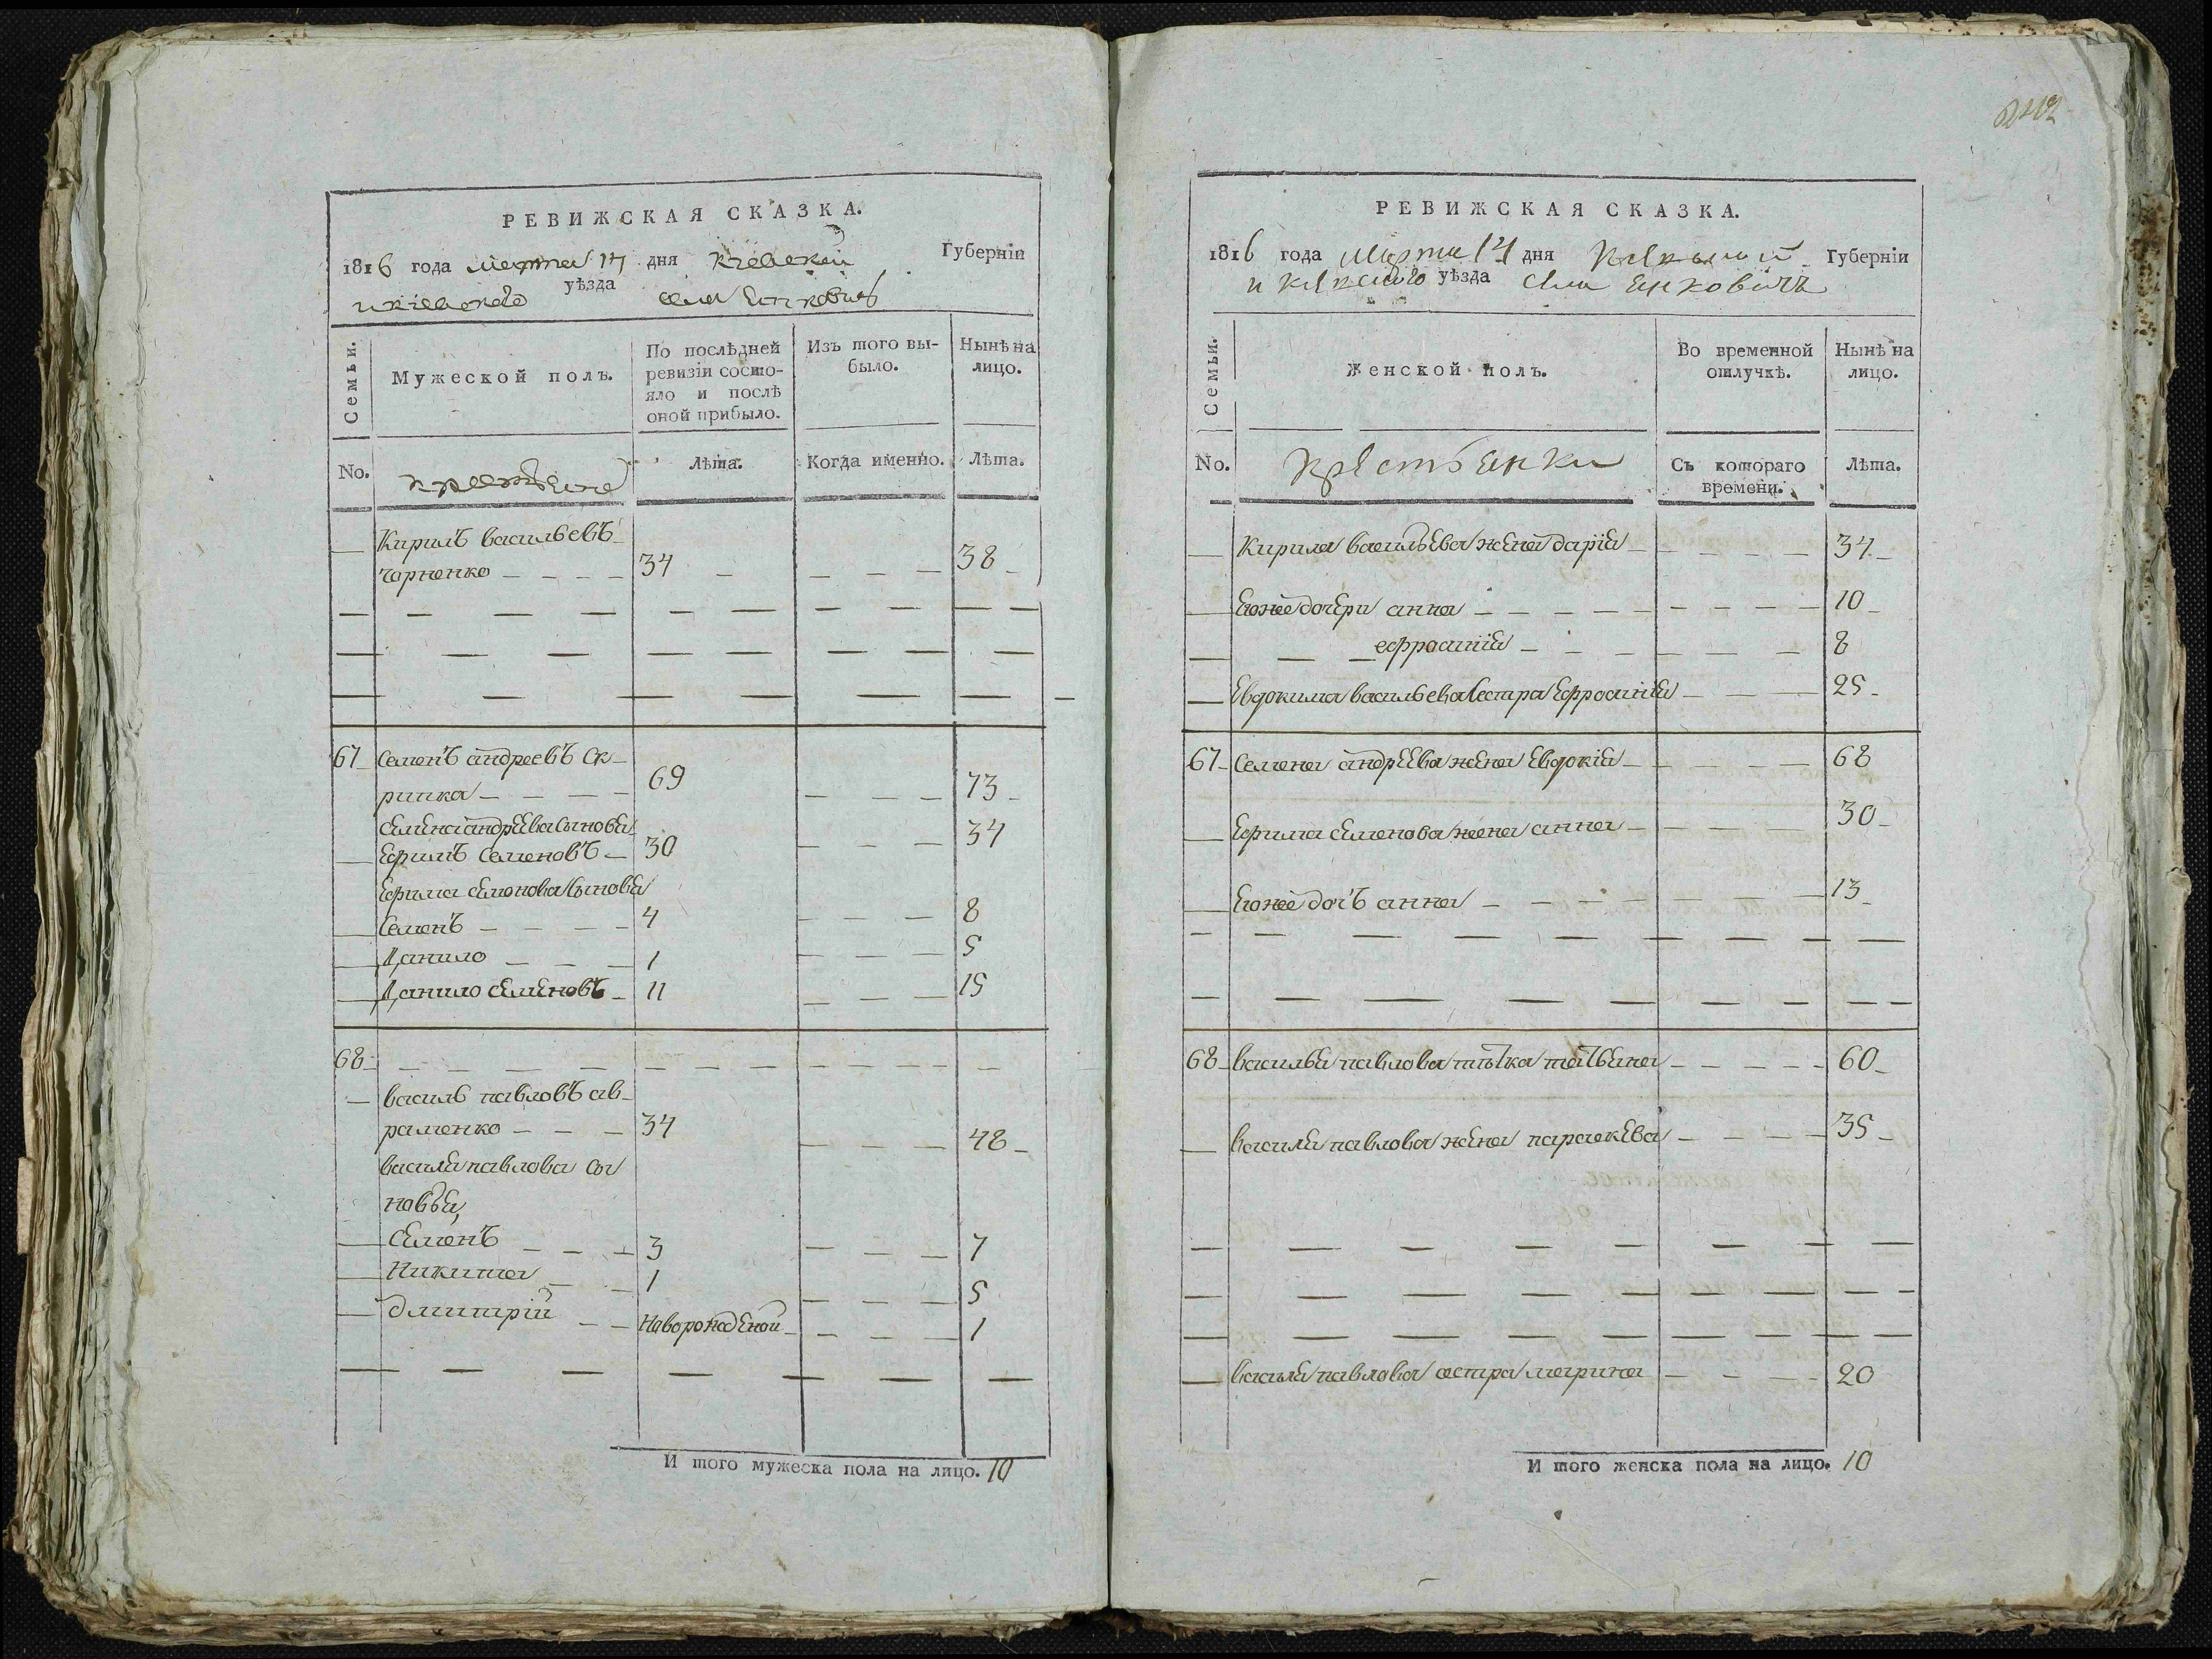 РЕВИЖСКАЯ СКАЗКА.
1816 года Марта 14 дня Кіевской Губерніи
и кіевского уѣзда села Янковичъ
Семьи.
Мужеской полъ.
По послѣдней
ревизіи состо-
яло и послѣ
оной прибыло.
Изъ того вы-
было.
Нынѣ на
лицо.
No. крестьяне Лѣта. Когда именно. Лѣта.
Кирилъ васильевъ
чорненко 34 38
67 Семенъ андреевъ Ск-
рипка 69 73
Семена андреева сыновья
Ефимъ Семеновъ 30 34
Ефима семенова сыновья
Семенъ 4 8
Данило 1 5
Данило семеновъ 11 15
68
василь павловъ ав-
раменко 34 48
василя павлова сы
новья,
Семенъ 3 7
Никита 1 5
дмитрій Новорожденой 1
И того мужеска пола на лицо. 10
РЕВИЖСКАЯ СКАЗКА.
1816 года Марта 14 дня Губерніи
и уѣзда села Янковичъ
Семьи.
Женской полъ.
Во временной
отлучкѣ.
Нынѣ на
лицо.
No. крестьянки Съ котораго
времени. Лѣта.
Кирила васильева жена дарія 34
Егоже дочери анна 10
ефросинія 8
Евдокима васильева сестра Ефросинія 25
67 Семена андреева жена Евдокія 68
Ефима семенова жена анна 30
Егоже дочъ анна 13
68 василья павлова тіотка татьяна 60
василя павлова жена параскева 35
василя павлова сестра марина 20
И того женска пола на лицо. 10